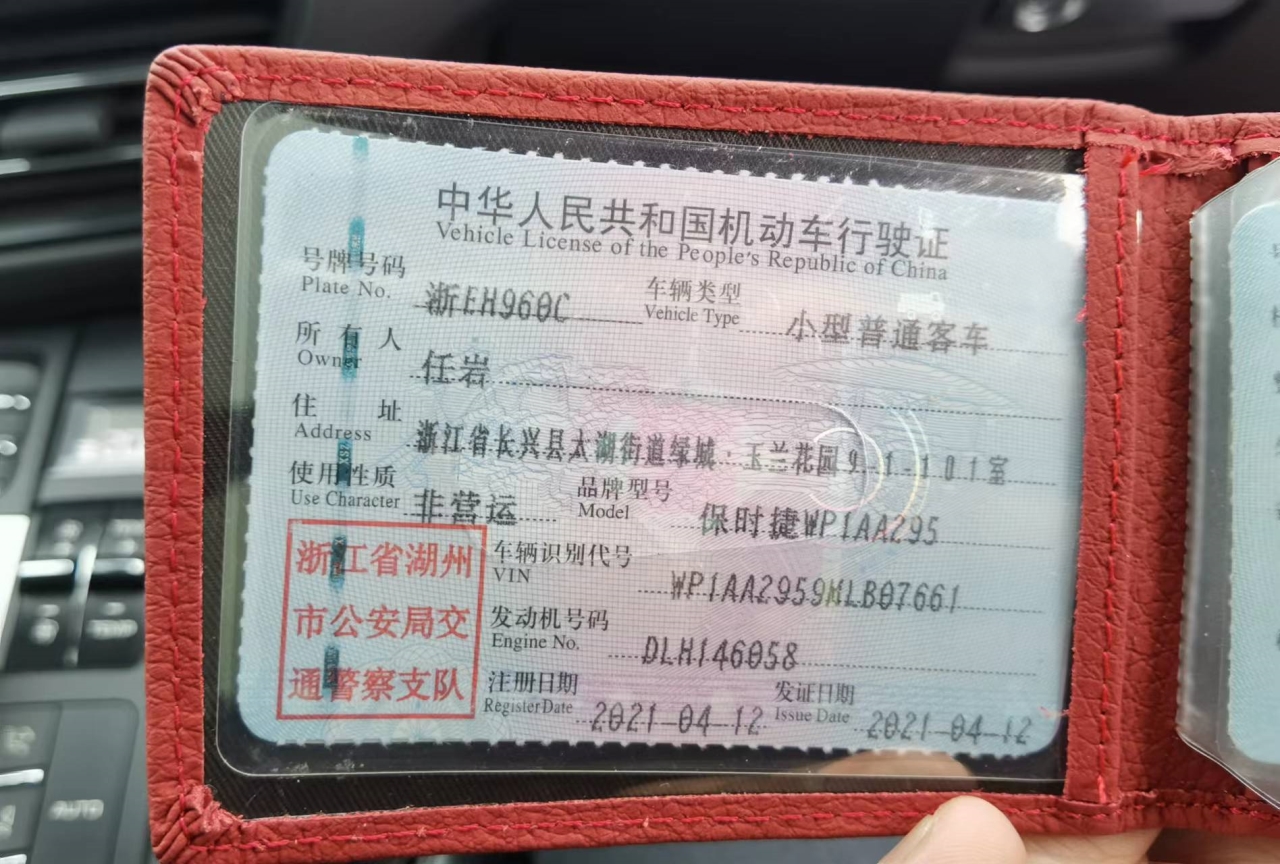 中华人民共和国机动车行驶证
Vehicle License of the People's Republic of China
号牌号码 浙EH960C 车辆类型 小型普通客车
Plate No. Vehicle Type
所有人 任岩
Owner
住址 浙江省长兴县太湖街道绿城·玉兰花园9-1-101室
Address
使用性质 非营运 品牌型号 保时捷WP1AA295
Use Character Model
浙江省湖州
市公安局交
通警察支队
车辆识别代号 WP1AA2959MLB07661
VIN
发动机号码 DLH146058
Engine No.
注册日期 2021-04-12 发证日期 2021-04-12
Register Date Issue Date
AUTO